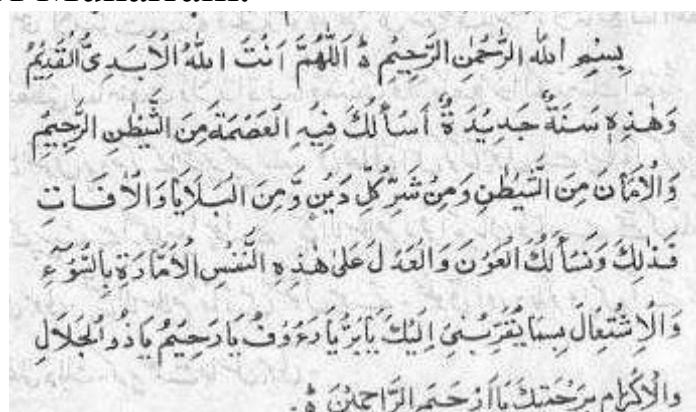 بِسْمِ اللهِ الرَّحْمٰنِ الرَّحِيْمِ ۞ اَللّٰهُمَّ اَنْتَ اللهُ الْاَبَدِىُّ الْقَدِيْمُ
وَهٰذِهٖ سَنَةٌ جَدِيْدَةٌ اَسْأَلُكَ فِيْهِ الْعَصْمَةَ مِنَ الشَّيْطٰنِ الرَّجِيْمِ
وَالْاَمَانَ مِنَ الشَّيْطٰنِ وَمِنْ شَرِّ كُلِّ دَيْنٍ وَّمِنَ الْبَلَايَا وَالْاٰفَاتِ
فَذٰلِكَ وَنَسْأَلُكَ الْعَوْنَ وَالْعَدْلَ عَلٰى هٰذِهِ النَّفْسِ الْاَمَّارَةِ بِالسُّوْٓءِ
وَالْاِشْتِعَالَ بِمَا يُقَرِّبُنِىْ اِلَيْكَ يَا بَرُّ يَا رَءُوْفُ يَا رَحِيْمُ يَا ذُو الْجَلَالِ
وَالْاِكْرَامِ بِرَحْمَتِكَ يَا اَرْحَمَ الرَّاحِمِيْنَ ۞